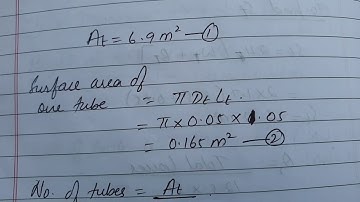 At = 6.9 m² — ①
Surface area of
one tube = π Dt Lt.
= π × 0.05 × 1.05
= 0.165 m² — ②
No. of tubes = At